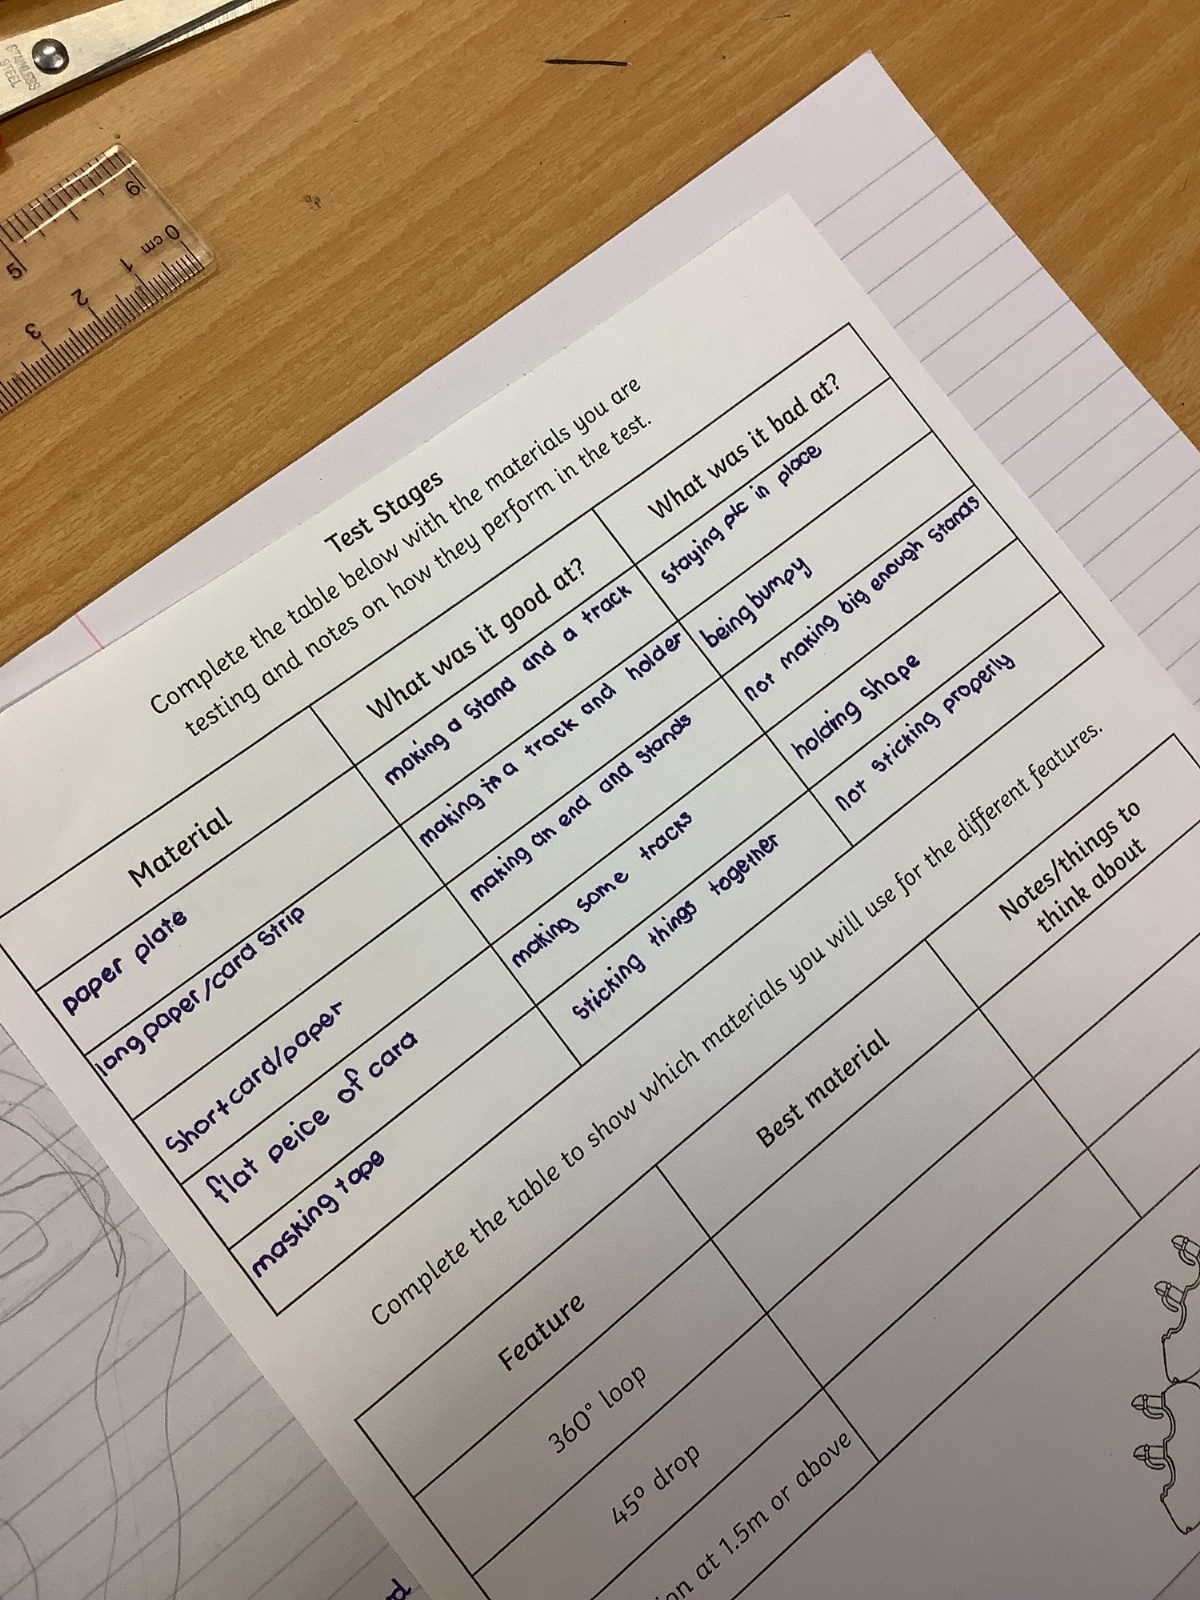 STAINLESS
STEEL
5
6
0 cm
1
2
3
Test Stages
Complete the table below with the materials you are
testing and notes on how they perform in the test.
Material
What was it good at?
What was it bad at?
paper plate
making a stand and a track
staying in place
long paper/card strip
making a track and holder
being bumpy
short card/paper
making an end and stands
not making big enough stands
flat peice of card
making some tracks
holding shape
masking tape
sticking things together
not sticking properly
Complete the table to show which materials you will use for the different features.
Feature
Best material
Notes/things to
think about
360° loop
45° drop
at 1.5m or above